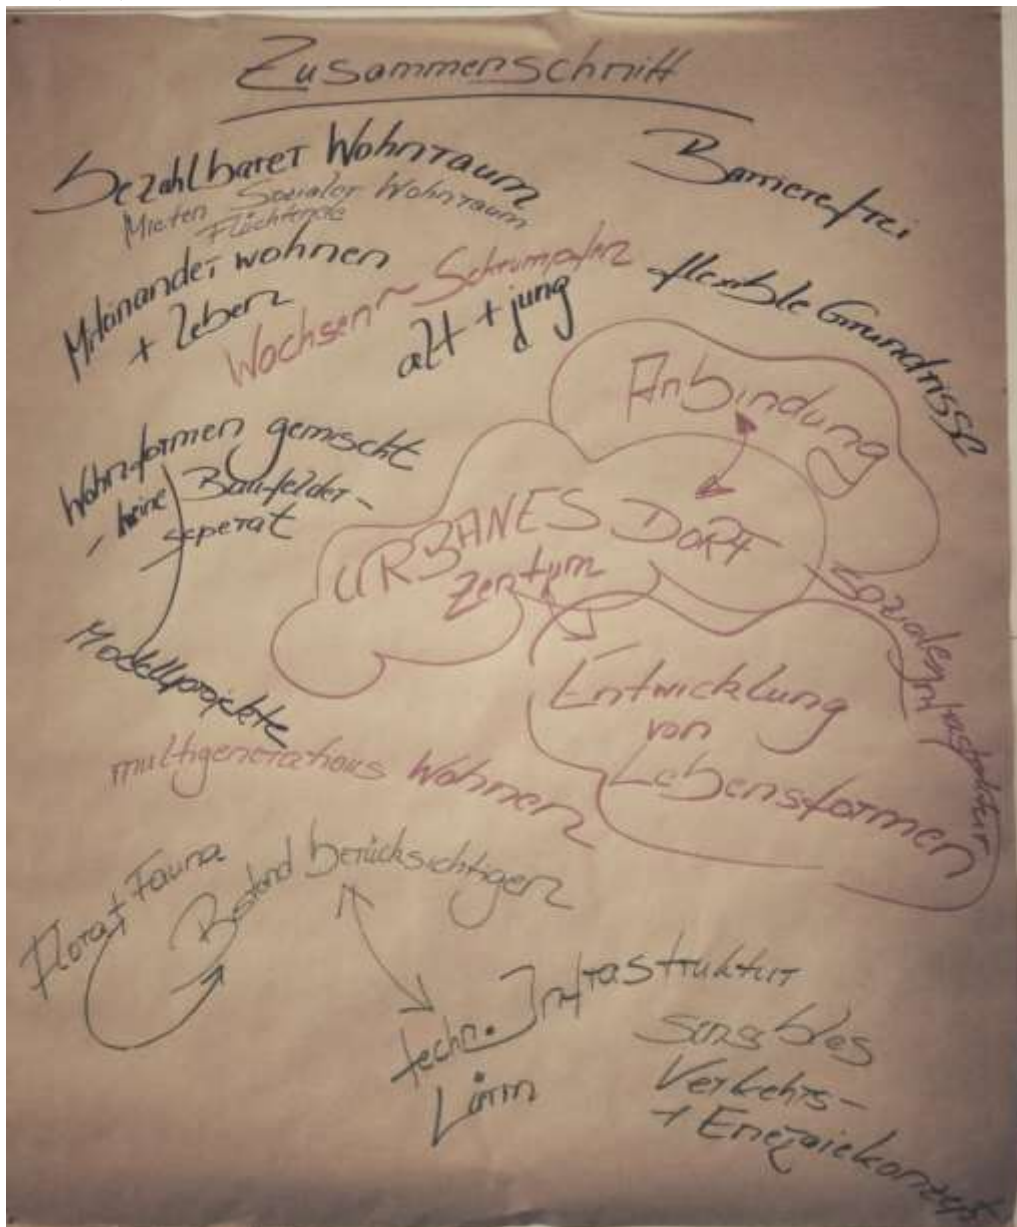 Zusammenschnitt
bezahlbarer Wohnraum
Mieten Sozialer Wohnraum
Flüchtende
Barrierefrei
Miteinander wohnen
+ leben
Wachsen ~ Schrumpfen
alt + jung
flexible Grundrisse
Anbindung
Wohnformen gemischt
- keine Baufelder -
seperat
URBANES DORF
Zentrum
soziale Infrastruktur
Modellprojekte
Entwicklung
von
Lebensformen
multigenerations Wohnen
Flora + Fauna
Bestand berücksichtigen
techn. Infrastruktur
Lärm
sensibles
Verkehrs-
+ Energiekonzept